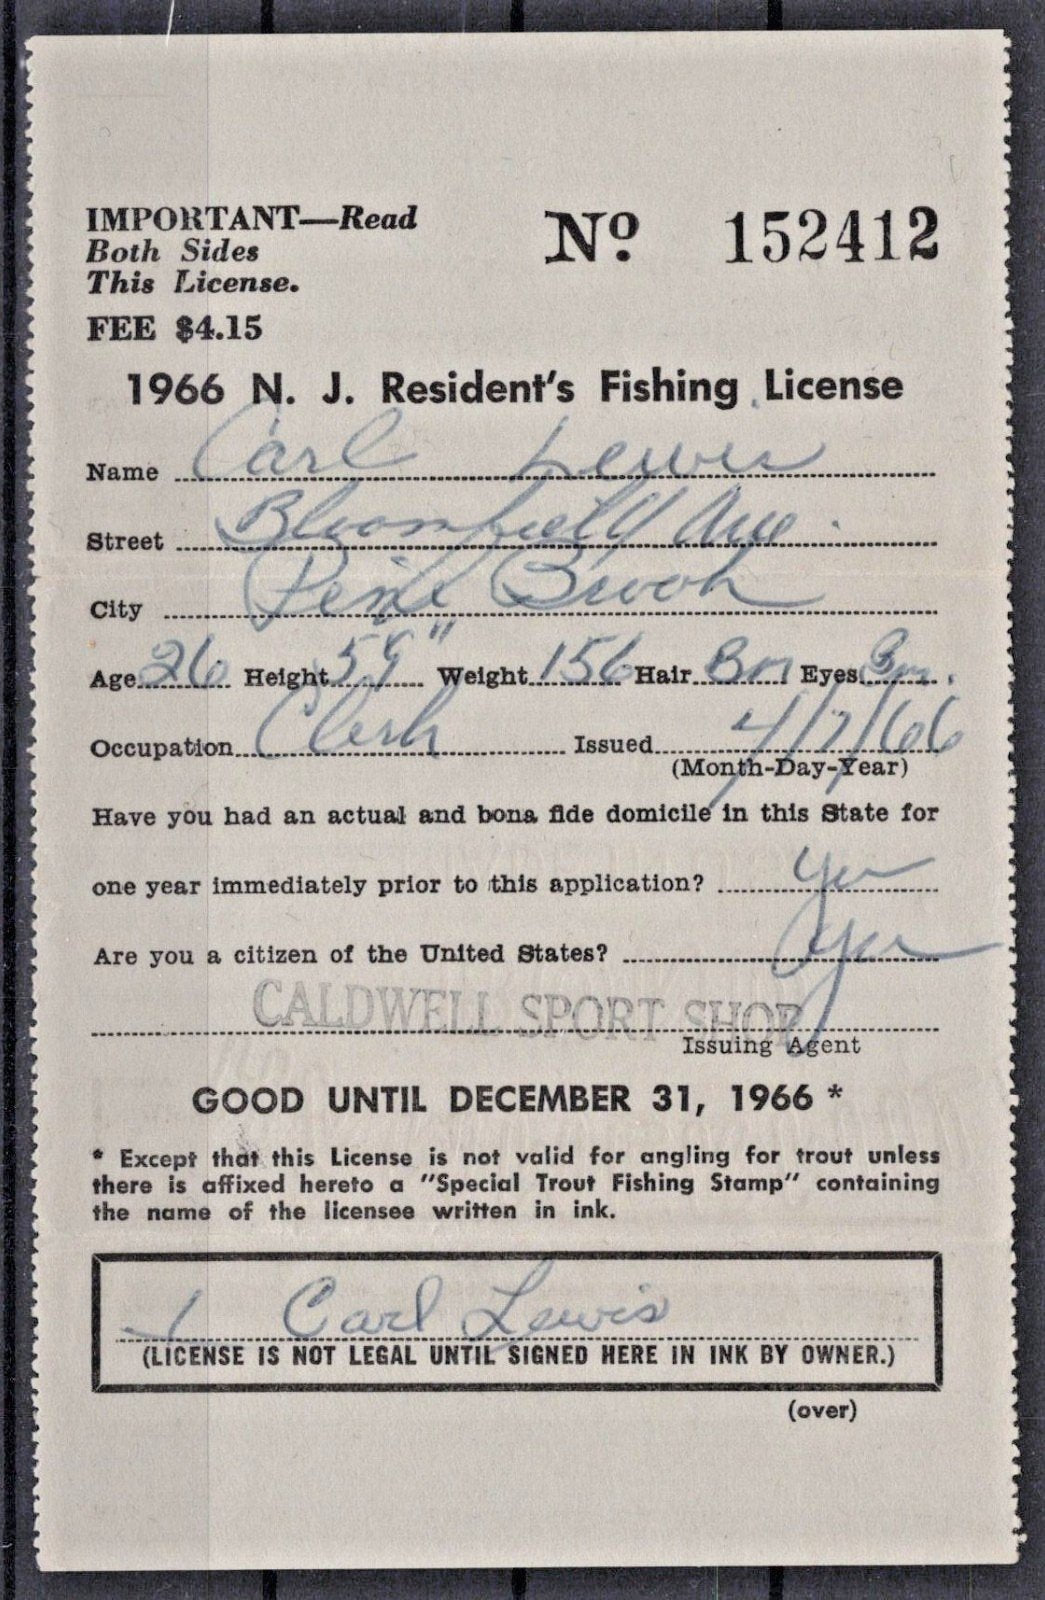 IMPORTANT—Read
Both Sides
This License.
FEE $4.15
Nº 152412
1966 N. J. Resident's Fishing License
Name Carl Lewis
Street Bloomfield Ave.
City Pine Brook
Age 26 Height 59" Weight 156 Hair Bn Eyes Brn.
Occupation Clerk Issued 4/7/66
(Month-Day-Year)
Have you had an actual and bona fide domicile in this State for
one year immediately prior to this application? Yes
Are you a citizen of the United States? Yes
CALDWELL SPORT SHOP
Issuing Agent
GOOD UNTIL DECEMBER 31, 1966 *
* Except that this License is not valid for angling for trout unless
there is affixed hereto a "Special Trout Fishing Stamp" containing
the name of the licensee written in ink.
Carl Lewis
(LICENSE IS NOT LEGAL UNTIL SIGNED HERE IN INK BY OWNER.)
(over)